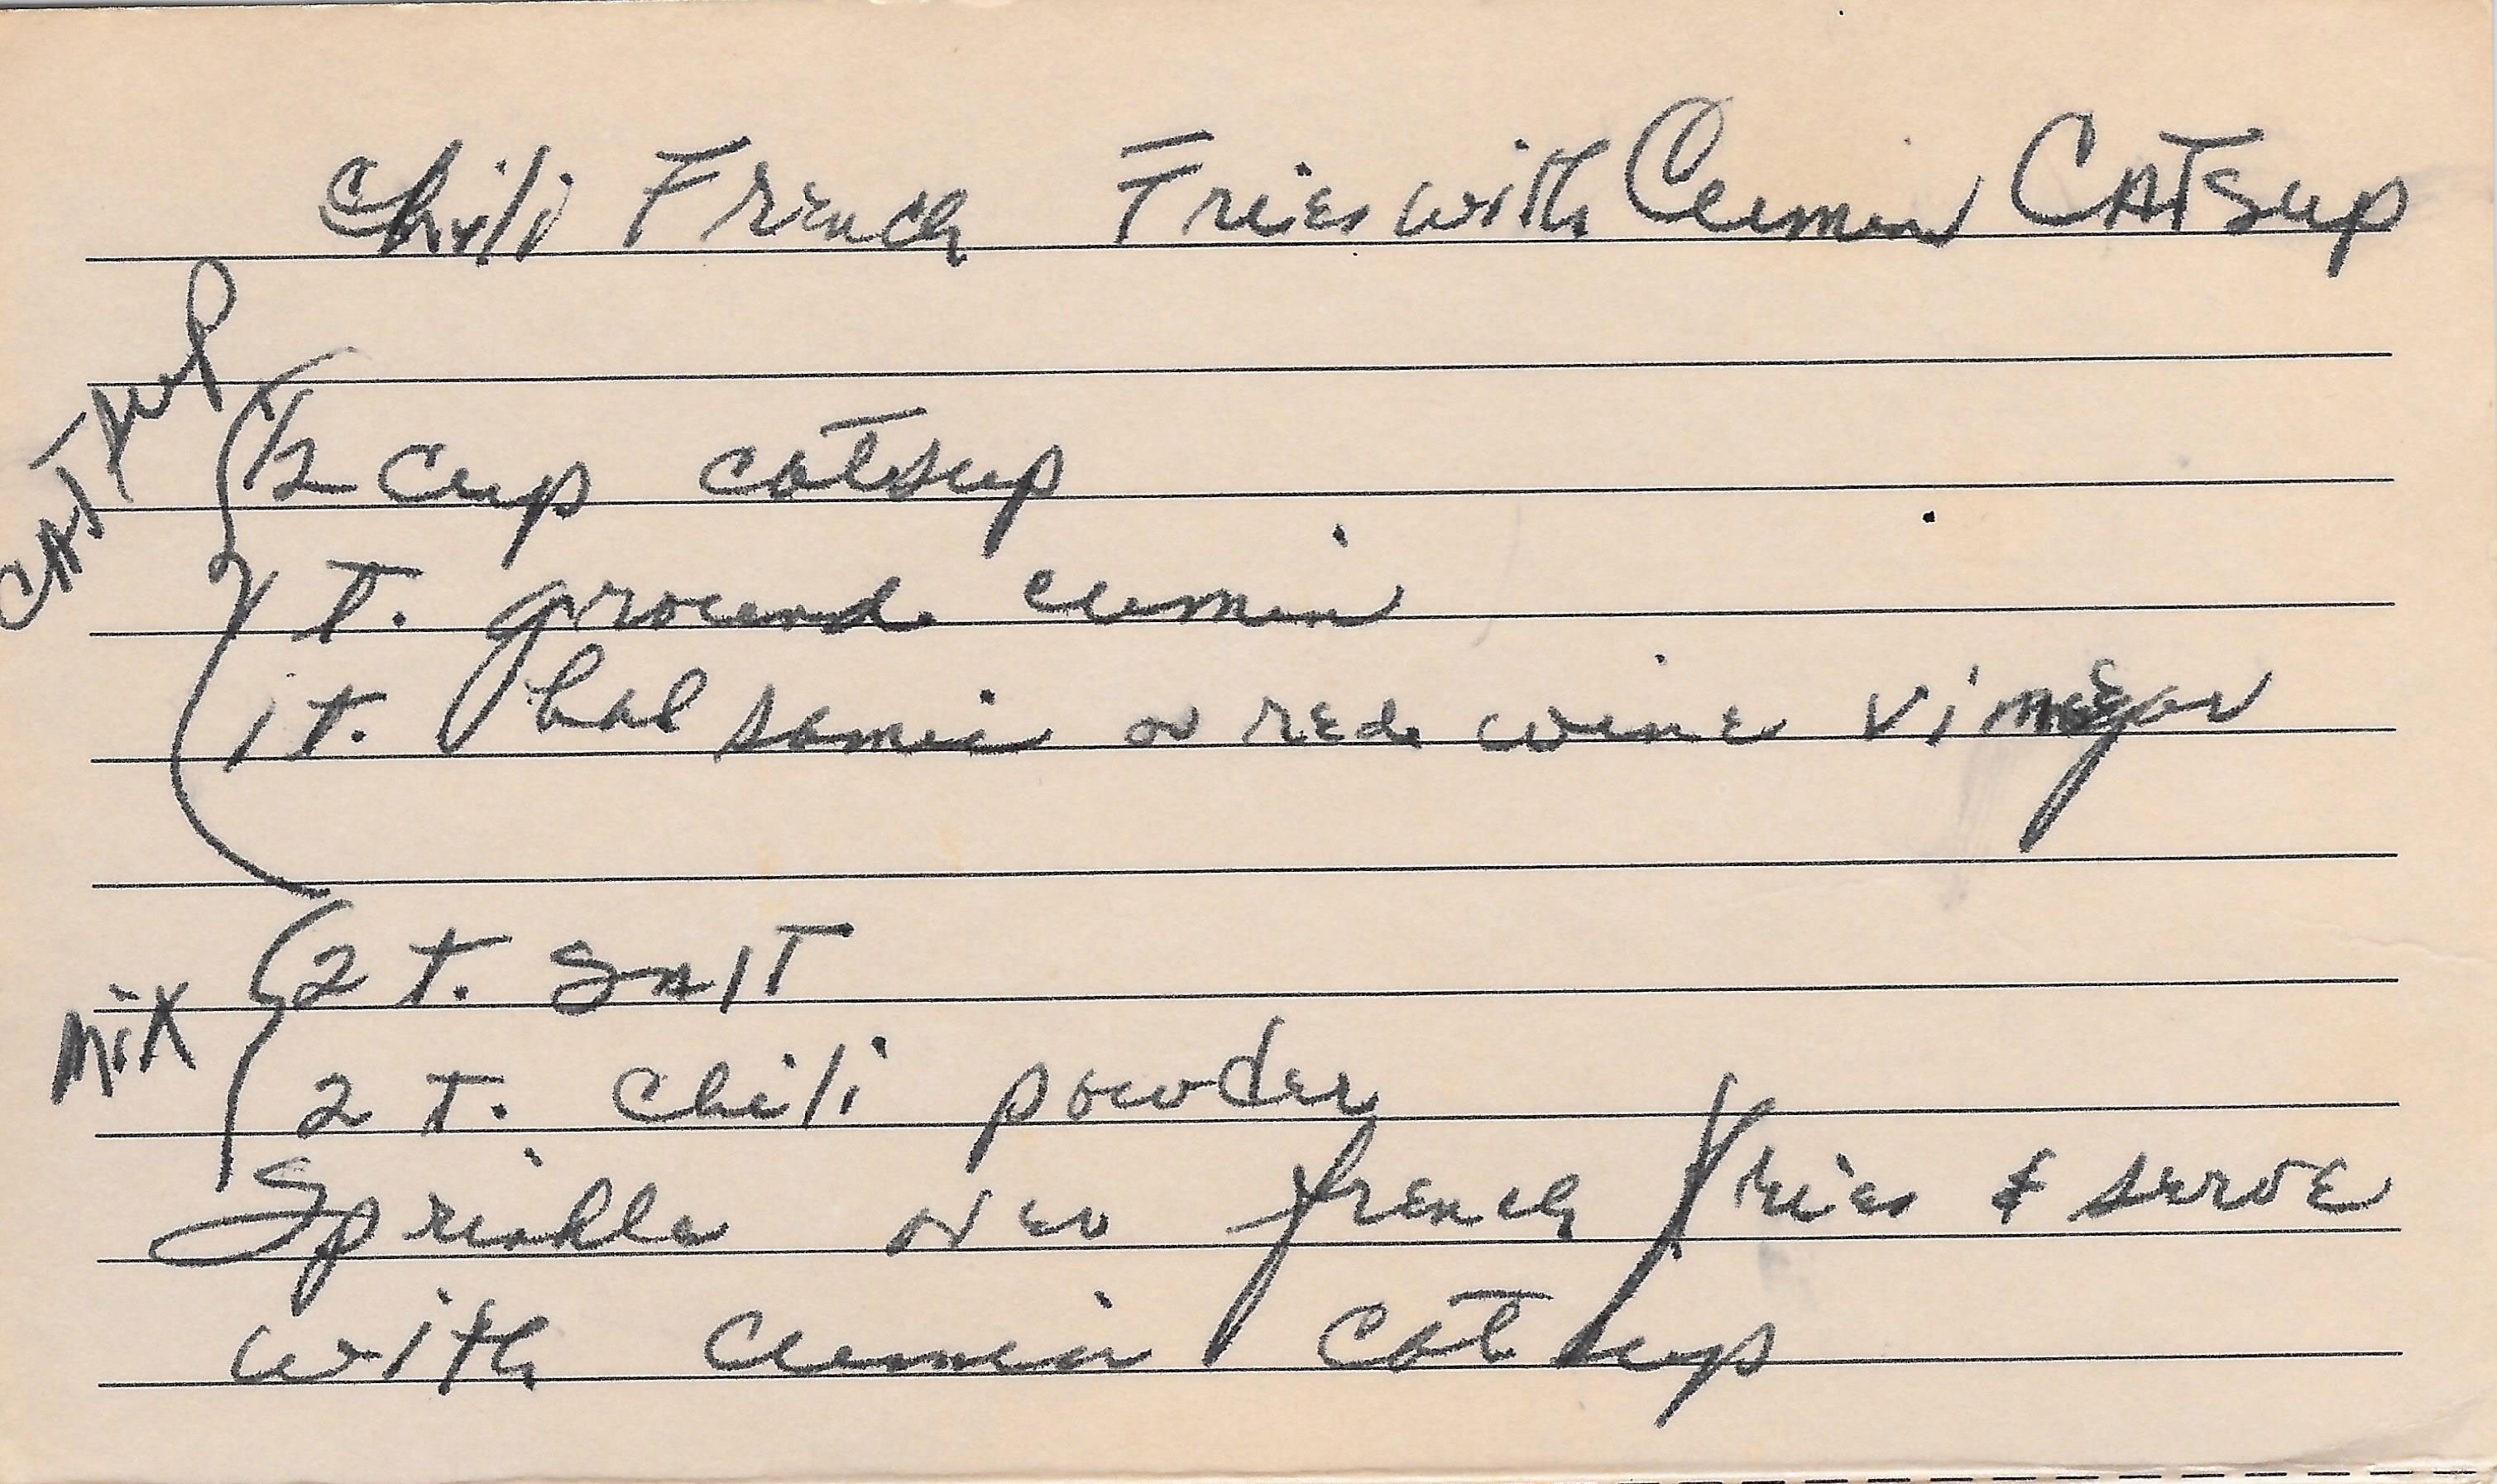 Chili French Fries with Cumin CATSUP
CATSUP
1/2 cup catsup
1 t. ground cumin
1 t. balsamic or red wine vinegar
MIX
2 t. SALT
2 t. chili powder
Sprinkle over french fries & serve
with cumin catsup